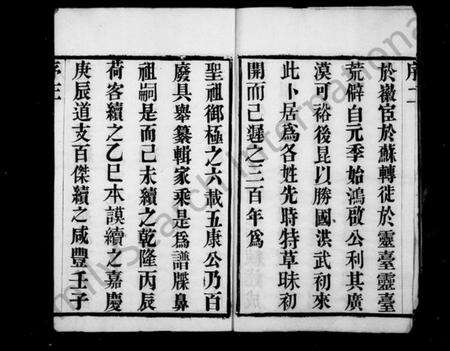 序二
於徽宦於蘇轉徙於靈臺靈臺
荒僻自元季始鴻啟公利其廣
漠可裕後昆以勝國洪武初來
此卜居爲各姓先時特草昧初
開而已遲之三百年爲
聖祖御極之六載五康公乃百
廢具舉纂輯家乘是爲譜牒鼻
祖嗣是而已未續之乾隆丙辰
荷客續之乙巳本謨續之嘉慶
庚辰道支百傑續之咸豐壬子
序三